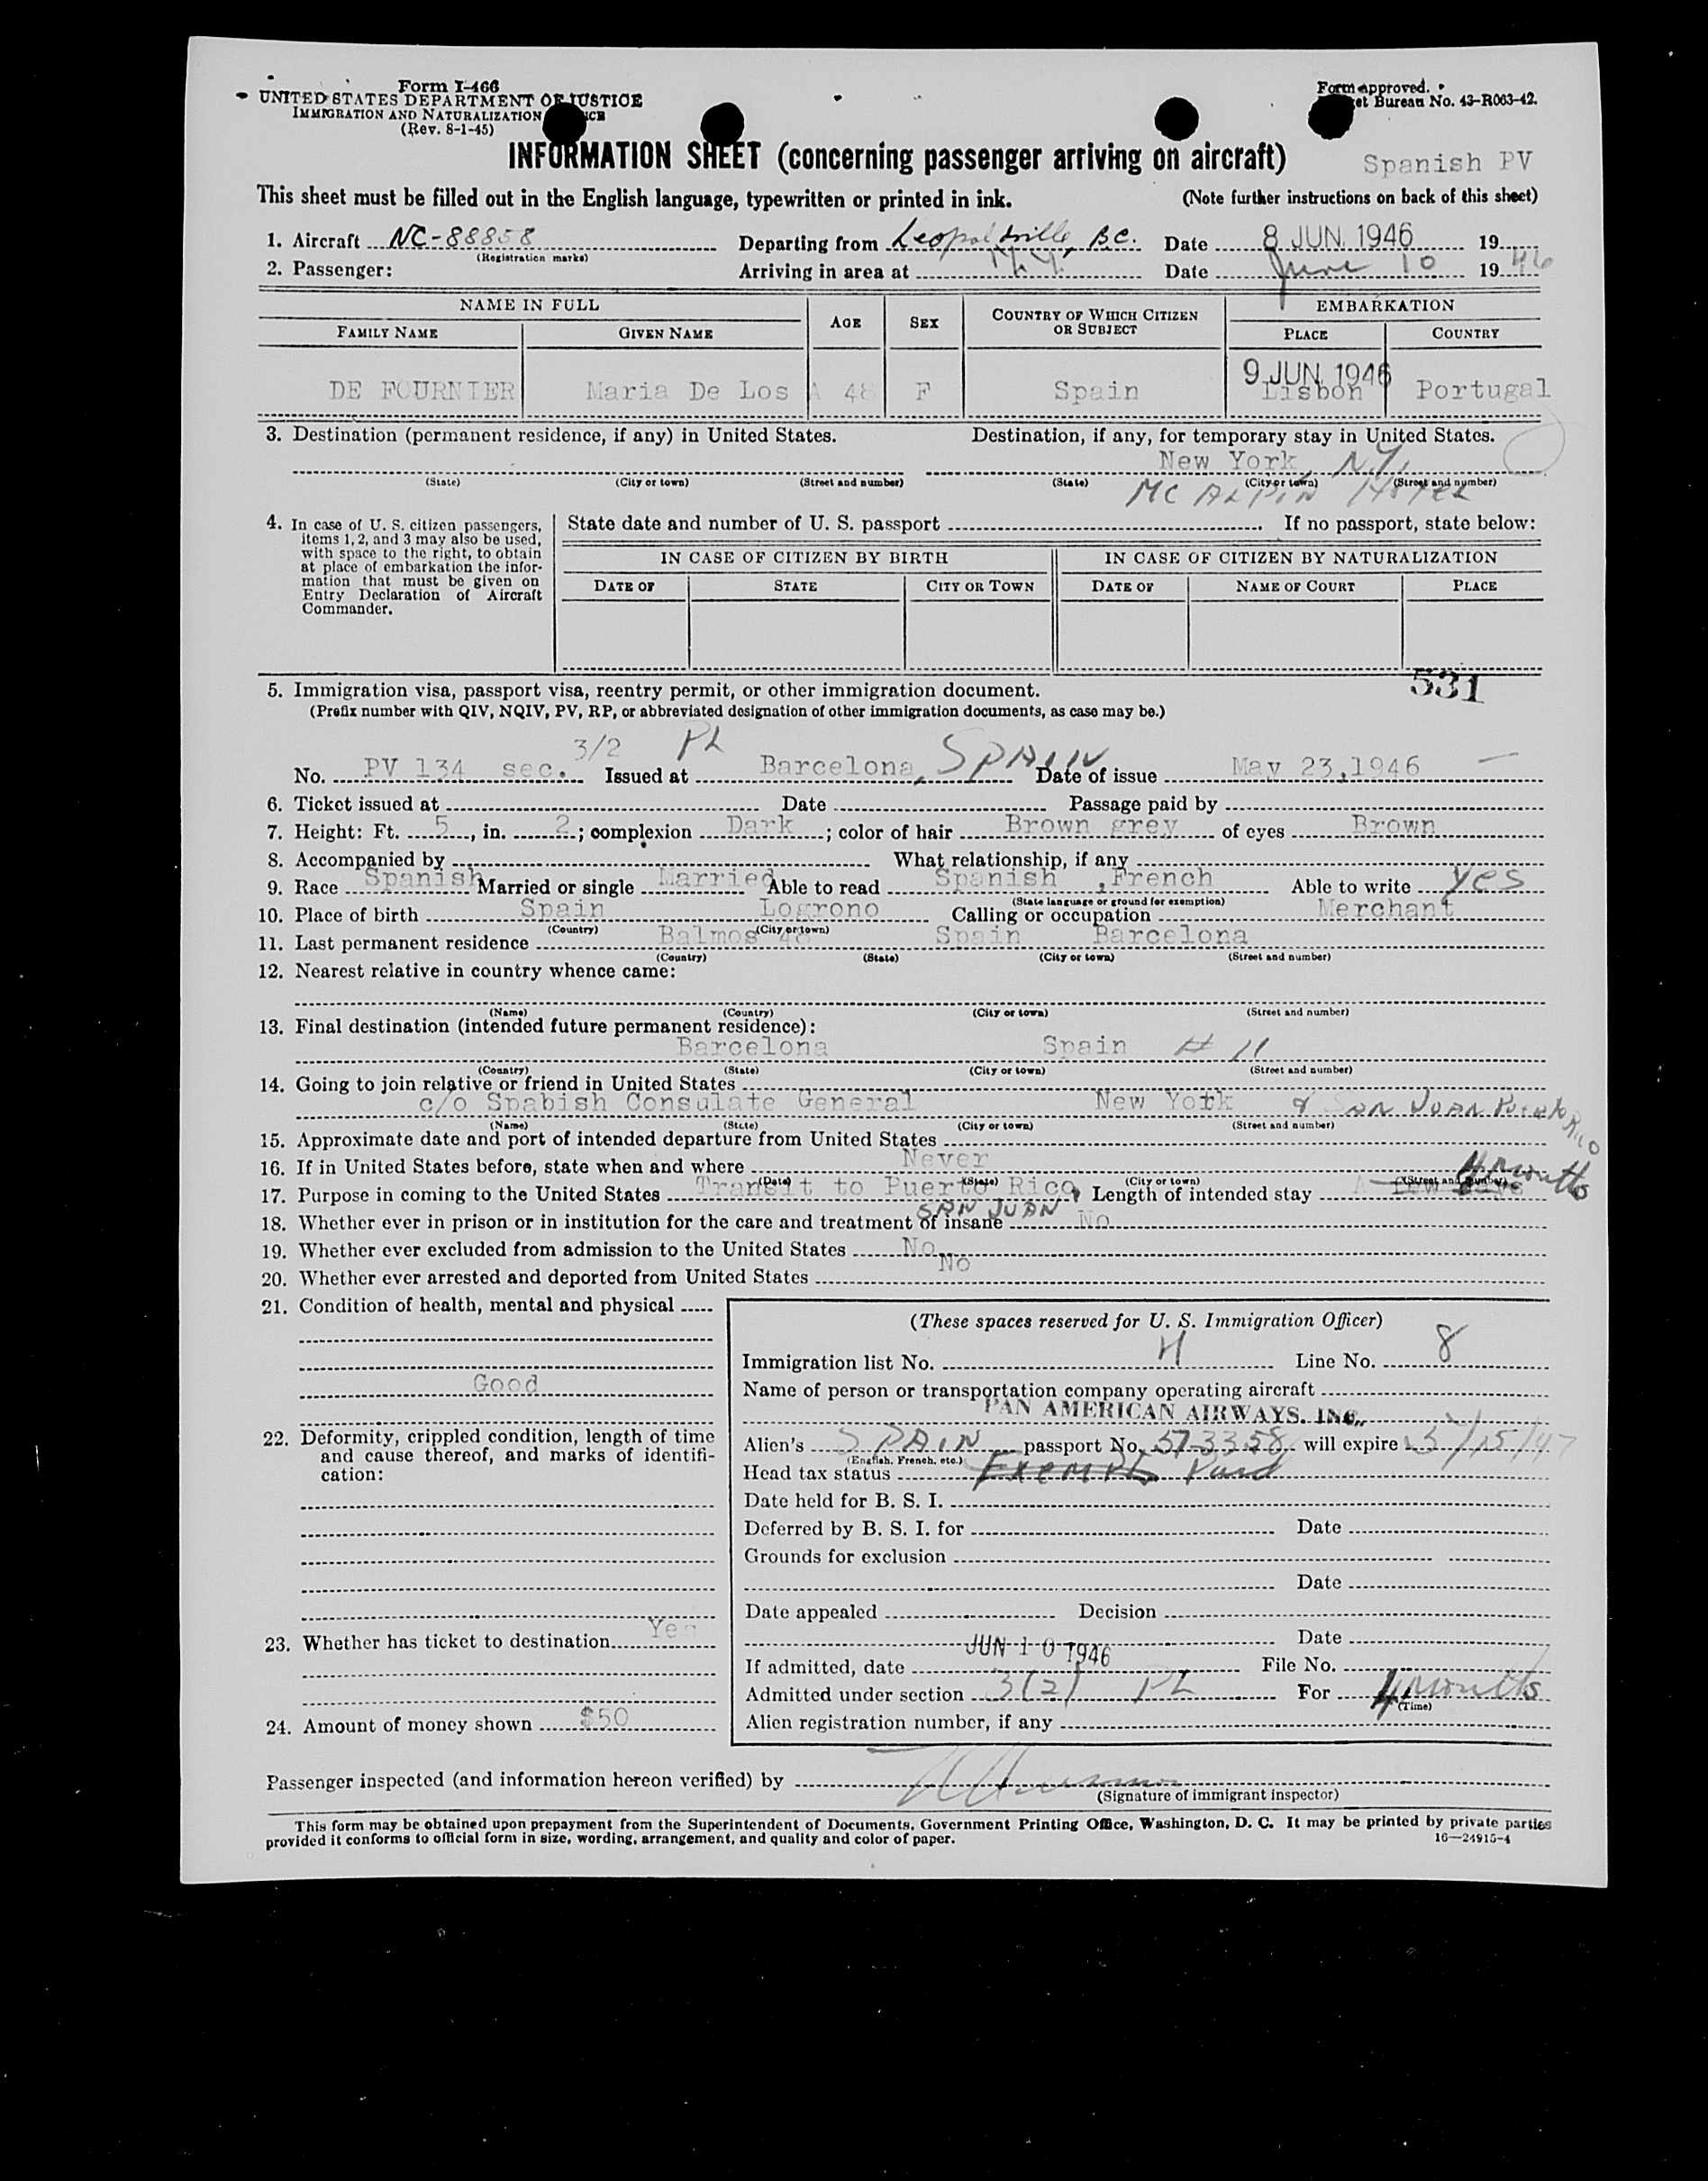 Form I-466
UNITED STATES DEPARTMENT OF JUSTICE
IMMIGRATION AND NATURALIZATION
(Rev. 8-1-45)
Form approved.
Bureau No. 43-R063-42.
INFORMATION SHEET (concerning passenger arriving on aircraft)
Spanish PV
This sheet must be filled out in the English language, typewritten or printed in ink. (Note further instructions on back of this sheet)
1. Aircraft NC-88858 Departing from Leopoldville, B.C. Date 8 JUN. 1946 19
(Registration marks)
2. Passenger: Arriving in area at N.Y. Date June 10 1946
NAME IN FULL AGE SEX COUNTRY OF WHICH CITIZEN OR SUBJECT EMBARKATION
FAMILY NAME GIVEN NAME PLACE COUNTRY
9 JUN. 1946
DE FOURNIER Maria De Los A 48 F Spain Lisbon Portugal
3. Destination (permanent residence, if any) in United States. Destination, if any, for temporary stay in United States.
New York, N.Y.
(State) (City or town) (Street and number) (State) (City or town) (Street and number)
MC ALPIN HOTEL
4. In case of U. S. citizen passengers, items 1, 2, and 3 may also be used, with space to the right, to obtain at place of embarkation the information that must be given on Entry Declaration of Aircraft Commander.
State date and number of U. S. passport . If no passport, state below:
IN CASE OF CITIZEN BY BIRTH IN CASE OF CITIZEN BY NATURALIZATION
DATE OF STATE CITY OR TOWN DATE OF NAME OF COURT PLACE
531
5. Immigration visa, passport visa, reentry permit, or other immigration document.
(Prefix number with QIV, NQIV, PV, RP, or abbreviated designation of other immigration documents, as case may be.)
3/2 PL
No. PV 134 sec. Issued at Barcelona, SPAIN Date of issue May 23,1946
6. Ticket issued at Date Passage paid by
7. Height: Ft. 5, in. 2; complexion Dark; color of hair Brown grey of eyes Brown
8. Accompanied by What relationship, if any
9. Race Spanish Married or single Married Able to read Spanish , French Able to write yes
(State language or ground for exemption)
10. Place of birth Spain Logrono Calling or occupation Merchant
(Country) (City or town)
11. Last permanent residence Balmos 48 Spain Barcelona
(Country) (State) (City or town) (Street and number)
12. Nearest relative in country whence came:
(Name) (Country) (City or town) (Street and number)
13. Final destination (intended future permanent residence):
Barcelona Spain # 11
(Country) (State) (City or town) (Street and number)
14. Going to join relative or friend in United States
c/o Spabish Consulate General New York & SAN JUAN Puerto RICO
(Name) (State) (City or town) (Street and number)
15. Approximate date and port of intended departure from United States
16. If in United States before, state when and where Never
(Date) (State) (City or town) (Street and number)
17. Purpose in coming to the United States Transit to Puerto Rico, Length of intended stay A few days 4 months
SAN JUAN
18. Whether ever in prison or in institution for the care and treatment of insane No
19. Whether ever excluded from admission to the United States No
20. Whether ever arrested and deported from United States No
21. Condition of health, mental and physical
Good
22. Deformity, crippled condition, length of time and cause thereof, and marks of identification:
23. Whether has ticket to destination Yes
24. Amount of money shown $50
(These spaces reserved for U. S. Immigration Officer)
Immigration list No. 4 Line No. 8
Name of person or transportation company operating aircraft
PAN AMERICAN AIRWAYS. INC.
Alien's SPAIN passport No. 373358 will expire 3/15/47
(English, French, etc.)
Head tax status Exempt Paid
Date held for B. S. I.
Deferred by B. S. I. for Date
Grounds for exclusion
Date
Date appealed Decision
Date
If admitted, date JUN 10 1946 File No.
Admitted under section 3(2) PL For 4 months
(Time)
Alien registration number, if any
Passenger inspected (and information hereon verified) by
(Signature of immigrant inspector)
This form may be obtained upon prepayment from the Superintendent of Documents, Government Printing Office, Washington, D. C. It may be printed by private parties
provided it conforms to official form in size, wording, arrangement, and quality and color of paper. 16—24915-4